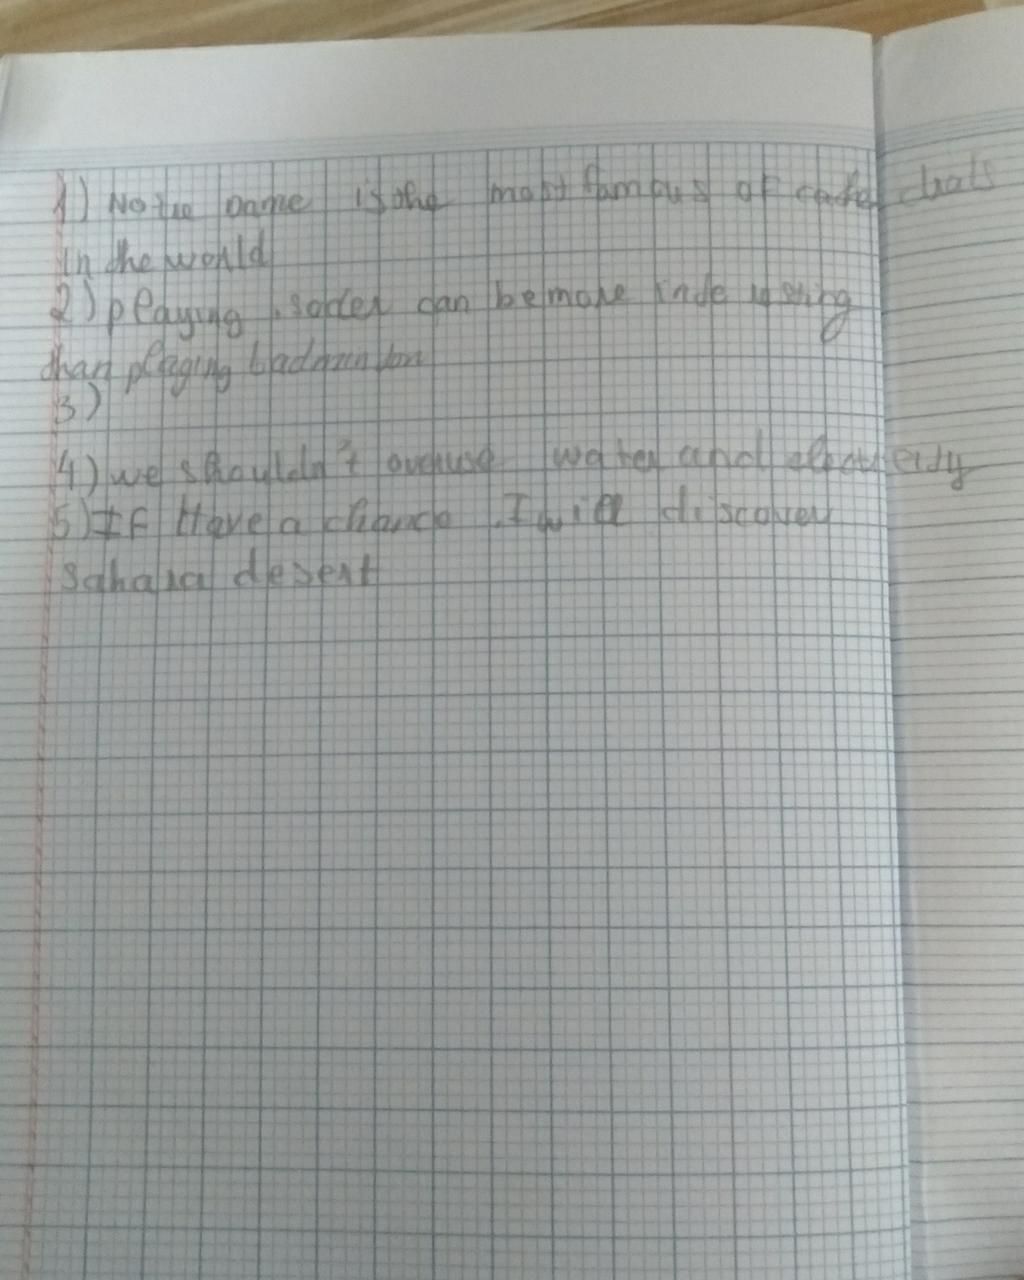 1) Notre Dame is the most famous of cathedrals
in the world
2) playing soccer can be more interesting
than playing badminton
3)
4) we shouldn't overuse water and electricity
5) If Have a chance . I will discover
sahara desert